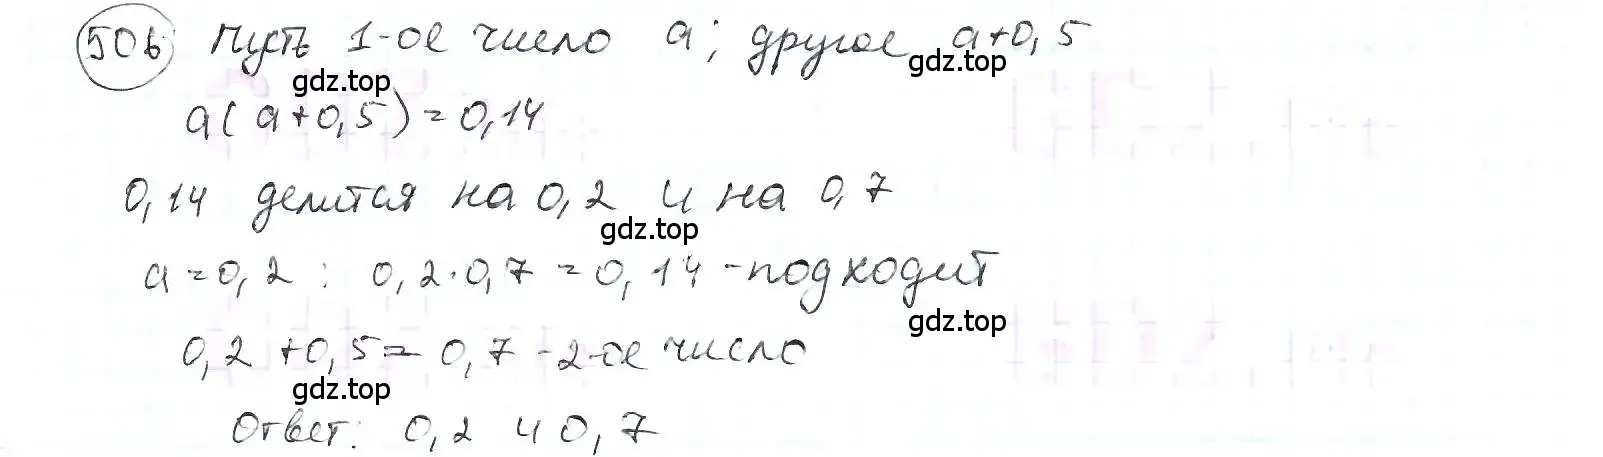 506 Пусть 1-ое число a; другое a+0,5
gdz.top
gdz.top
a(a+0,5)=0,14
0,14 делится на 0,2 и на 0,7
gdz.top
a=0,2 : 0,2·0,7=0,14 - подходит
gdz.top
0,2+0,5=0,7 - 2-ое число
gdz.top
Ответ: 0,2 и 0,7